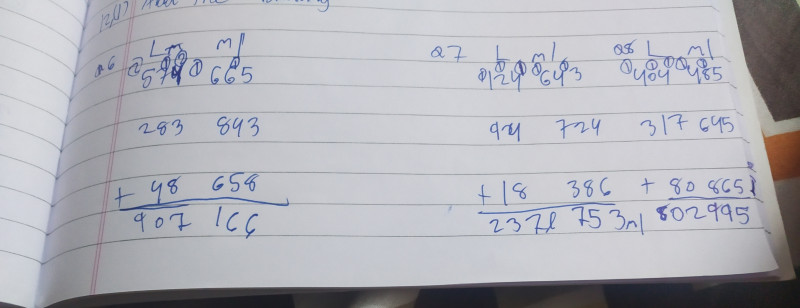 Add the
Q6 L ml Q7 L ml Q8 L ml
574 665 124 643 404 485
283 843 94 724 317 645
+ 48 658 + 18 386 + 80 865
907 166 237l 753ml 802995